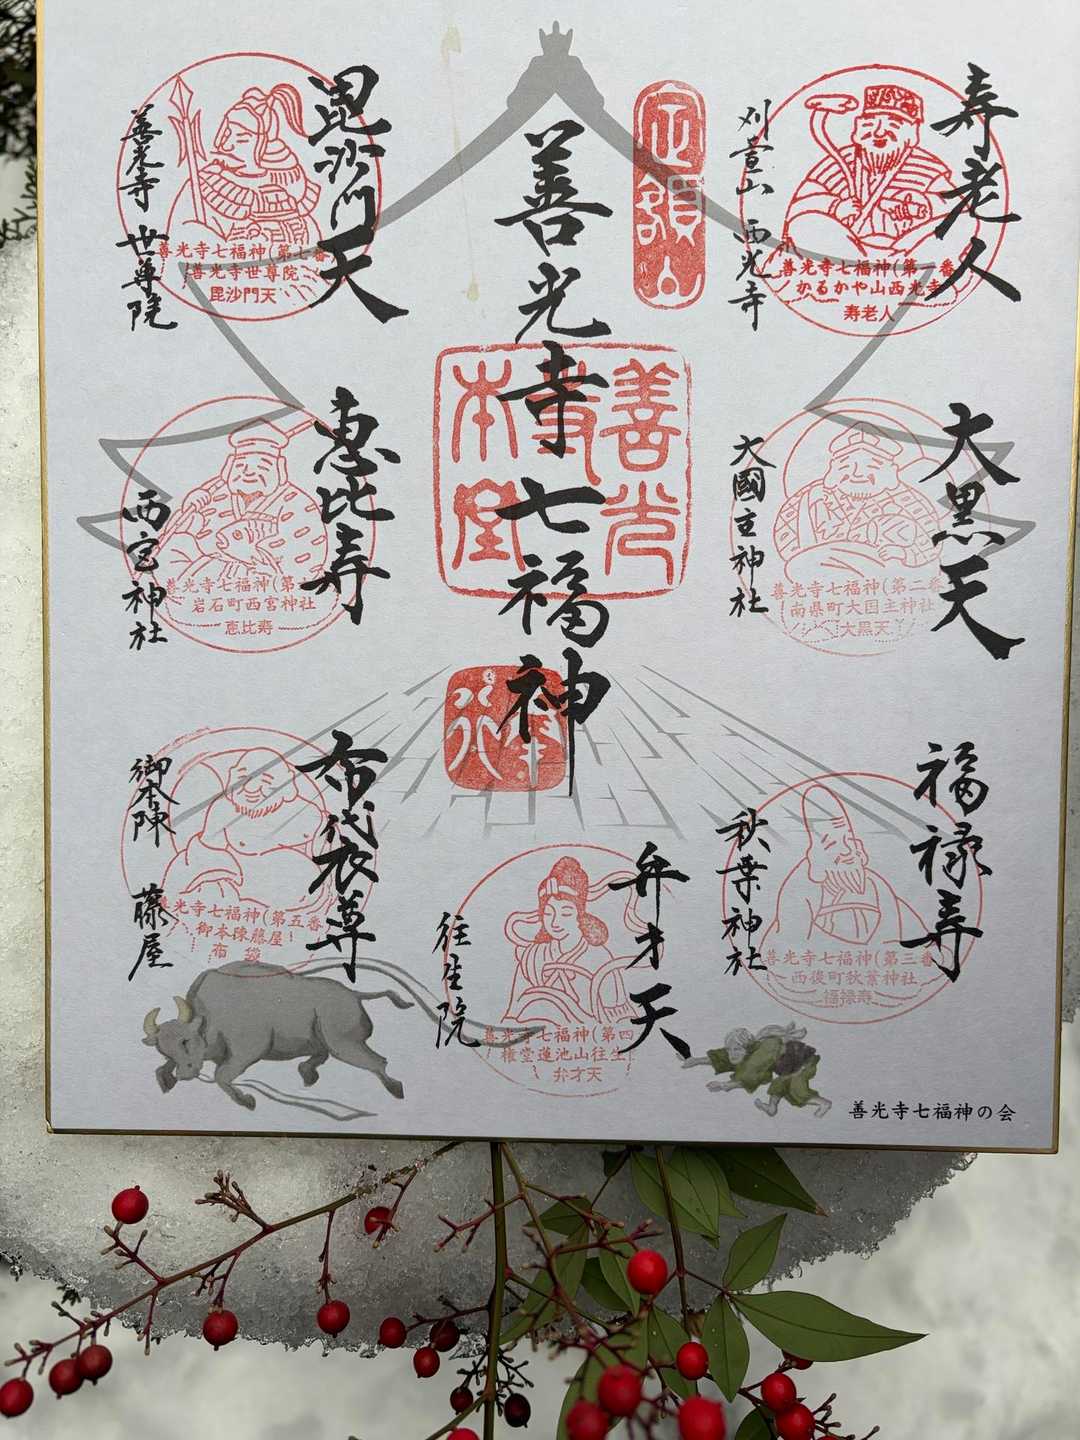 寿老人
刈萱山 西光寺
善光寺七福神(第一番
かるかや山西光寺
寿老人
大黒天
大國主神社
善光寺七福神(第二番
南県町大国主神社
大黒天
福禄寿
秋葉神社
善光寺七福神(第三番
西後町秋葉神社
福禄寿
定額山
善光寺七福神
善光
本堂
奉
弁才天
往生院
善光寺七福神(第四
権堂蓮池山往生
弁才天
毘沙門天
善光寺 世尊院
善光寺七福神(第七番
善光寺世尊院
毘沙門天
恵比寿
西宮神社
善光寺七福神(第
岩石町西宮神社
恵比寿
布袋尊
御本陳 藤屋
善光寺七福神(第五番
御本陳藤屋
布袋
善光寺七福神の会